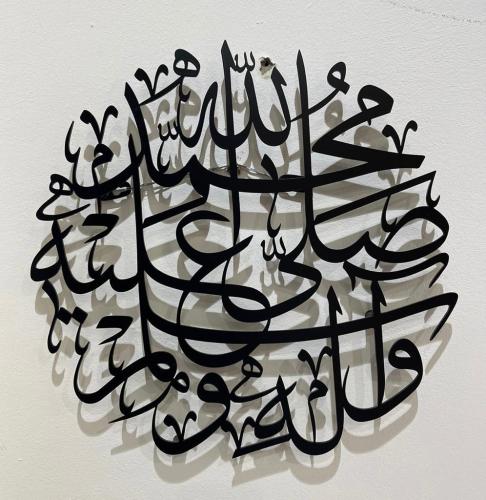 محمد صلى الله عليه وآله وسلم